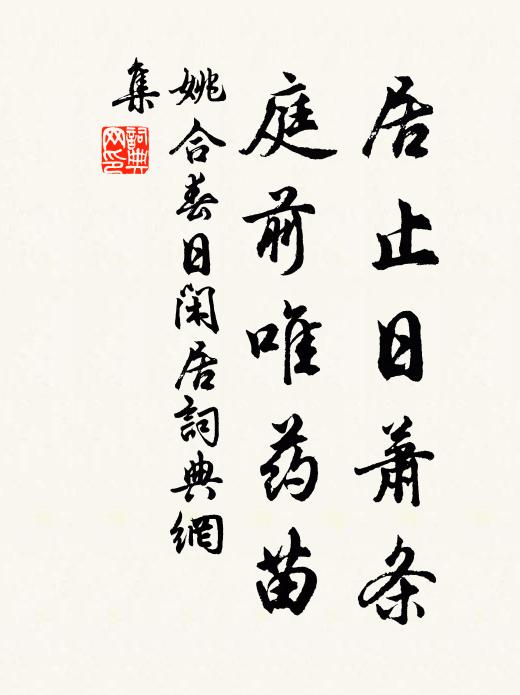 居止日萧条
庭前唯药苗
姚合春日闲居詞典網
集
詞典网印